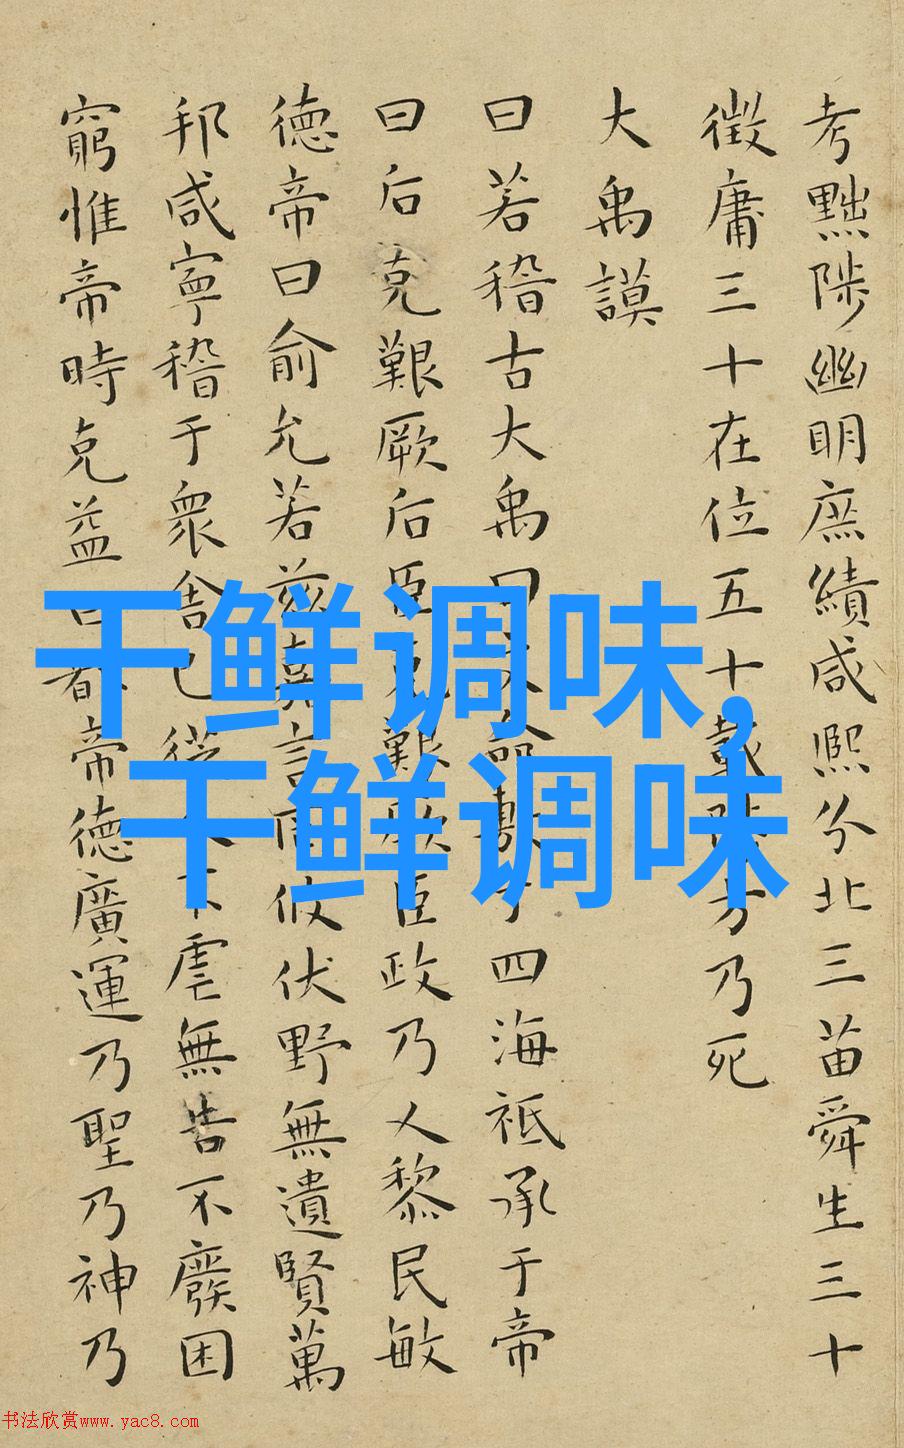 考黜陟幽明庶績咸熙分北三苗舜生三十
徵庸三十在位五十載陟方乃死
大禹謨
曰若稽古大禹曰文命敷于四海祗承于帝
曰后克艱厥后臣克艱厥臣政乃乂黎民敏
德帝曰俞允若兹嘉言罔攸伏野無遺賢萬
邦咸寧稽于衆舍己從人不虐無告不廢困
窮惟帝時克益曰都帝德廣運乃聖乃神乃
干鲜调味,
干鲜调味
书法欣赏www.yac8.com